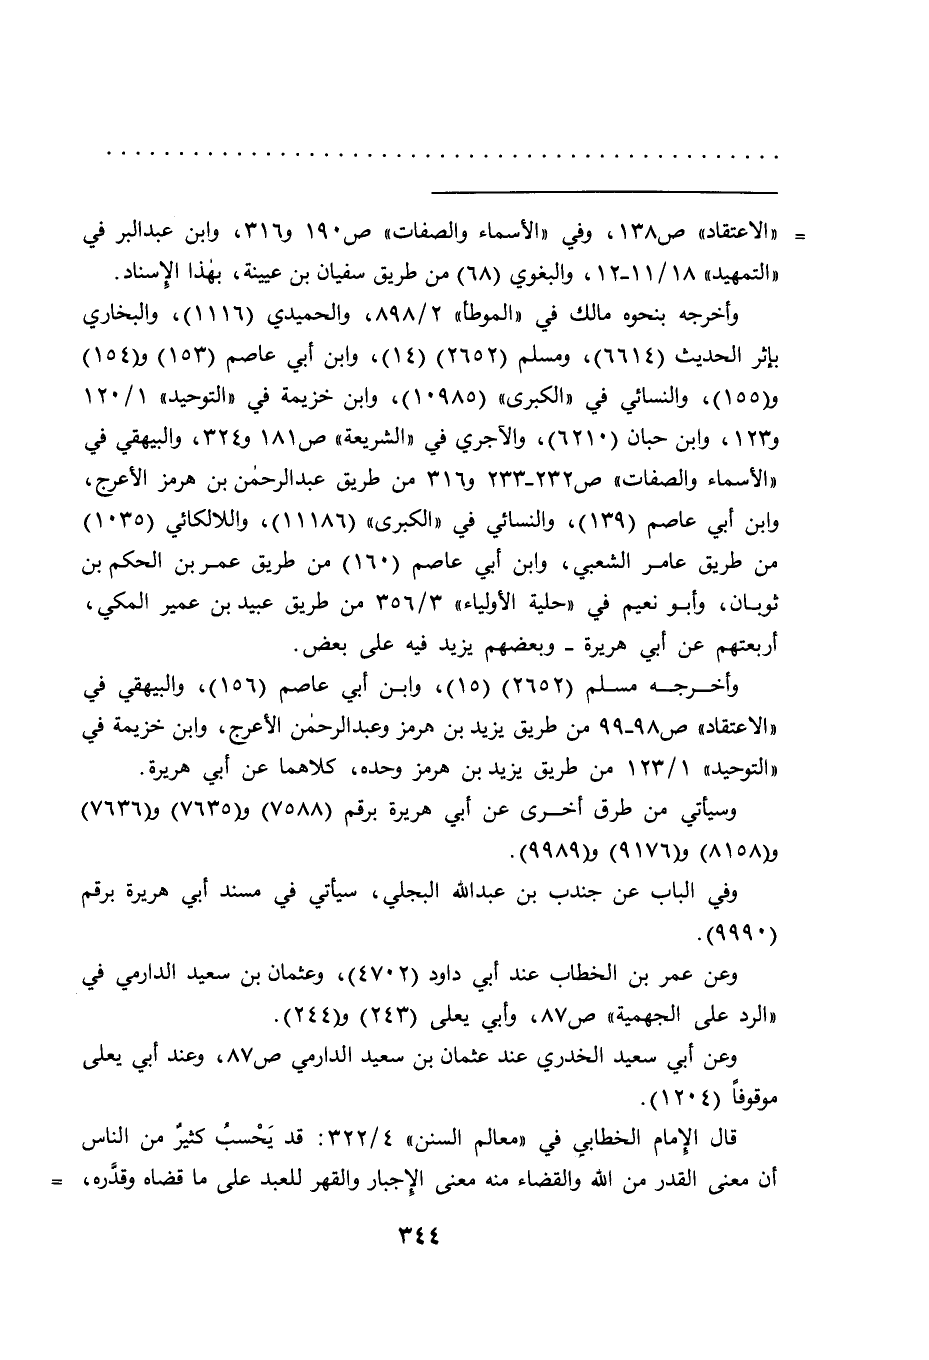 = «الاعتقاد» ص١٣٨، وفي «الأسماء والصفات» ص١٩٠ و٣١٦، وابن عبدالبر في
«التمهيد» ١٨/ ١١-١٢، والبغوي (٦٨) من طريق سفيان بن عيينة، بهٰذا الإسناد.
وأخرجه بنحوه مالك في «الموطأ» ٢/ ٨٩٨، والحميدي (١١١٦)، والبخاري
بإثر الحديث (٦٦١٤)، ومسلم (٢٦٥٢) (١٤)، وابن أبي عاصم (١٥٣) و(١٥٤)
و(١٥٥)، والنسائي في «الكبرى» (١٠٩٨٥)، وابن خزيمة في «التوحيد» ١/ ١٢٠
و١٢٣، وابن حبان (٦٢١٠)، والآجري في «الشريعة» ص١٨١ و٣٢٤، والبيهقي في
«الأسماء والصفات» ص٢٣٢-٢٣٣ و٣١٦ من طريق عبدالرحمٰن بن هرمز الأعرج،
وابن أبي عاصم (١٣٩)، والنسائي في «الكبرى» (١١١٨٦)، واللالكائي (١٠٣٥)
من طريق عامر الشعبي، وابن أبي عاصم (١٦٠) من طريق عمر بن الحكم بن
ثوبان، وأبو نعيم في «حلية الأولياء» ٣/ ٣٥٦ من طريق عبيد بن عمير المكي،
أربعتهم عن أبي هريرة - وبعضهم يزيد فيه على بعض.
وأخرجه مسلم (٢٦٥٢) (١٥)، وابن أبي عاصم (١٥٦)، والبيهقي في
«الاعتقاد» ص٩٨-٩٩ من طريق يزيد بن هرمز وعبدالرحمٰن الأعرج، وابن خزيمة في
«التوحيد» ١/ ١٢٣ من طريق يزيد بن هرمز وحده، كلاهما عن أبي هريرة.
وسيأتي من طرق أخرى عن أبي هريرة برقم (٧٥٨٨) و(٧٦٣٥) و(٧٦٣٦)
و(٨١٥٨) و(٩١٧٦) و(٩٩٨٩).
وفي الباب عن جندب بن عبدالله البجلي، سيأتي في مسند أبي هريرة برقم
(٩٩٩٠).
وعن عمر بن الخطاب عند أبي داود (٤٧٠٢)، وعثمان بن سعيد الدارمي في
«الرد على الجهمية» ص٨٧، وأبي يعلى (٢٤٣) و(٢٤٤).
وعن أبي سعيد الخدري عند عثمان بن سعيد الدارمي ص٨٧، وعند أبي يعلى
موقوفاً (١٢٠٤).
قال الإمام الخطابي في «معالم السنن» ٤/ ٣٢٢: قد يَحْسبُ كثيرٌ من الناس
أن معنى القدر من الله والقضاء منه معنى الإجبار والقهر للعبد على ما قضاه وقدَّره، =
٣٤٤